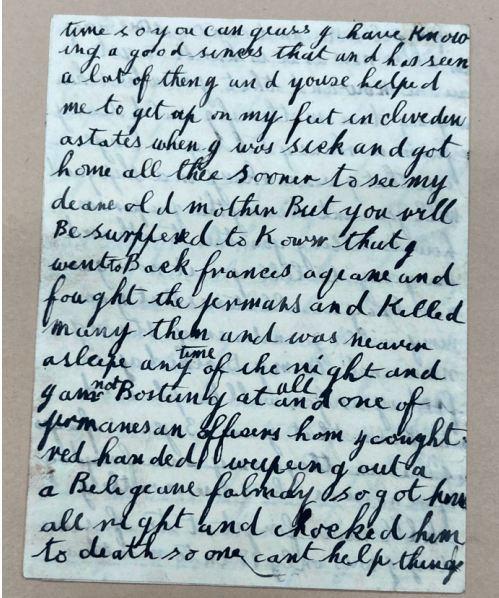 time so you can geuss y have know
ing a good sinces that and has seen
a lot of theng and youse helped
me to get up on my feet in cliveden
astates when y was sick and got
home all thee sooner to see my
deane old mother But you will
Be surppered to Kowrr that y
went to Back frances agane and
fought the jermans and Killed
many them and was neaver
asleepe any time of the night and
y am not Bosting at all and one of
jermanes an offisers hom y cought
red handed weipeing out a
a Beligeane falmay so got him
all right and chocked him
to death so one cant help things